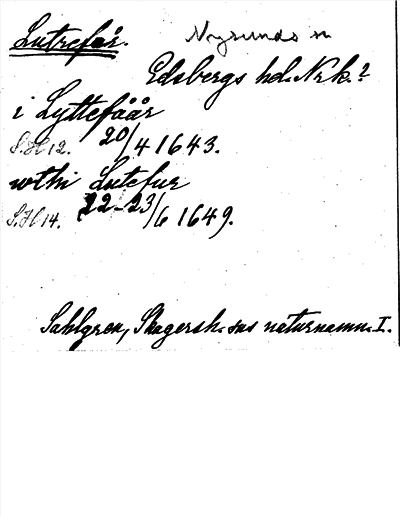 Lutrefår. Nysunds sn
Edsbergs hd. Nrk.?
i Lyttefåår
S.H 12. 20/4 1643.
wthi Lutefur
S.H 14. 22-23/6 1649.
Sahlgren, Skagersh. sns naturnamn. I.